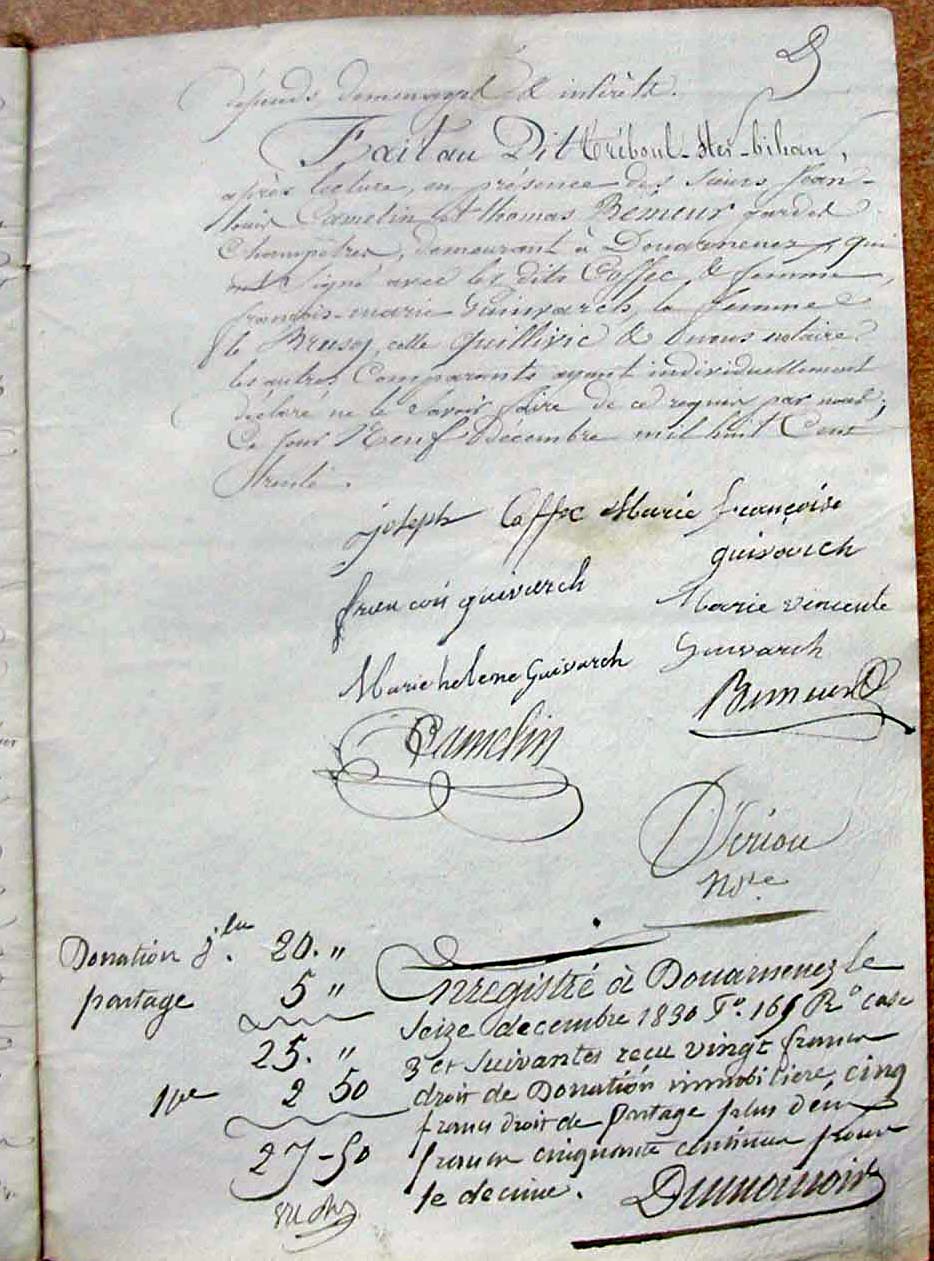 dépends dommages & intérêts.
Fait au Dit tréboul-Ster-bihan,
après lecture, en présence des sieurs Jean-
louis Camelin et thomas Bémeur gardes
Champêtres, demeurant à Douarnenez, qui
ont signé avec les dits Coffec & femme,
françois-marie Guivarch, la femme
le Brusq, celle Quillivic & nous notaire
les autres Comparants ayant individuellement
déclaré ne le Savoir faire de ce requis par nous,
Ce jour Neuf Décembre mil huit Cent
trente.
joseph Coffec Marie françoise
guivarch
françois guivarch
Marie vincente
Guivarch
Marie helene Guivarch
Bemeur
Camelin
Dériou
Nore
Donation j. 20. "
partage 5 "
25. "
1pe 2 50
27-50
Enregistré à Douarnenez le
seize decembre 1830 Fo. 169 Ro case
3 et suivantes recu vingt francs
droit de Donation immobiliere, cinq
francs droit de partage plus deux
francs cinquante centimes pour
le decime.
Dumanoir